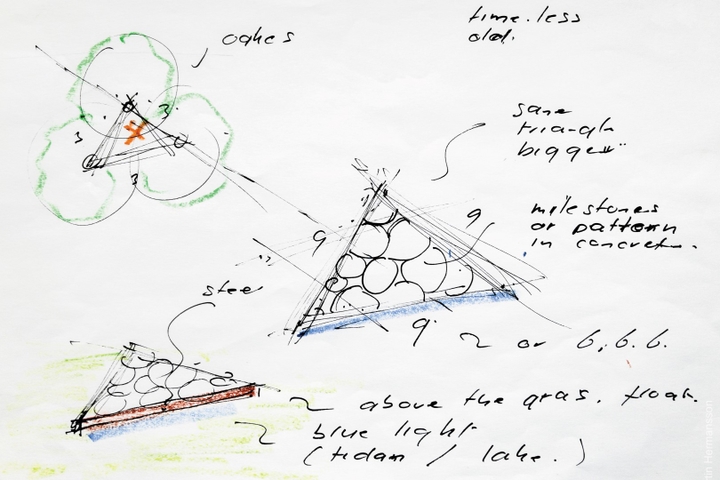 oakes
time.less
old.
3
3
3
same
triangle
bigger"
milestones
or pattern
in concrete.
9
9
9
steel
or 6,6.6.
above the gras. float.
blue light
(tidan / lake.)